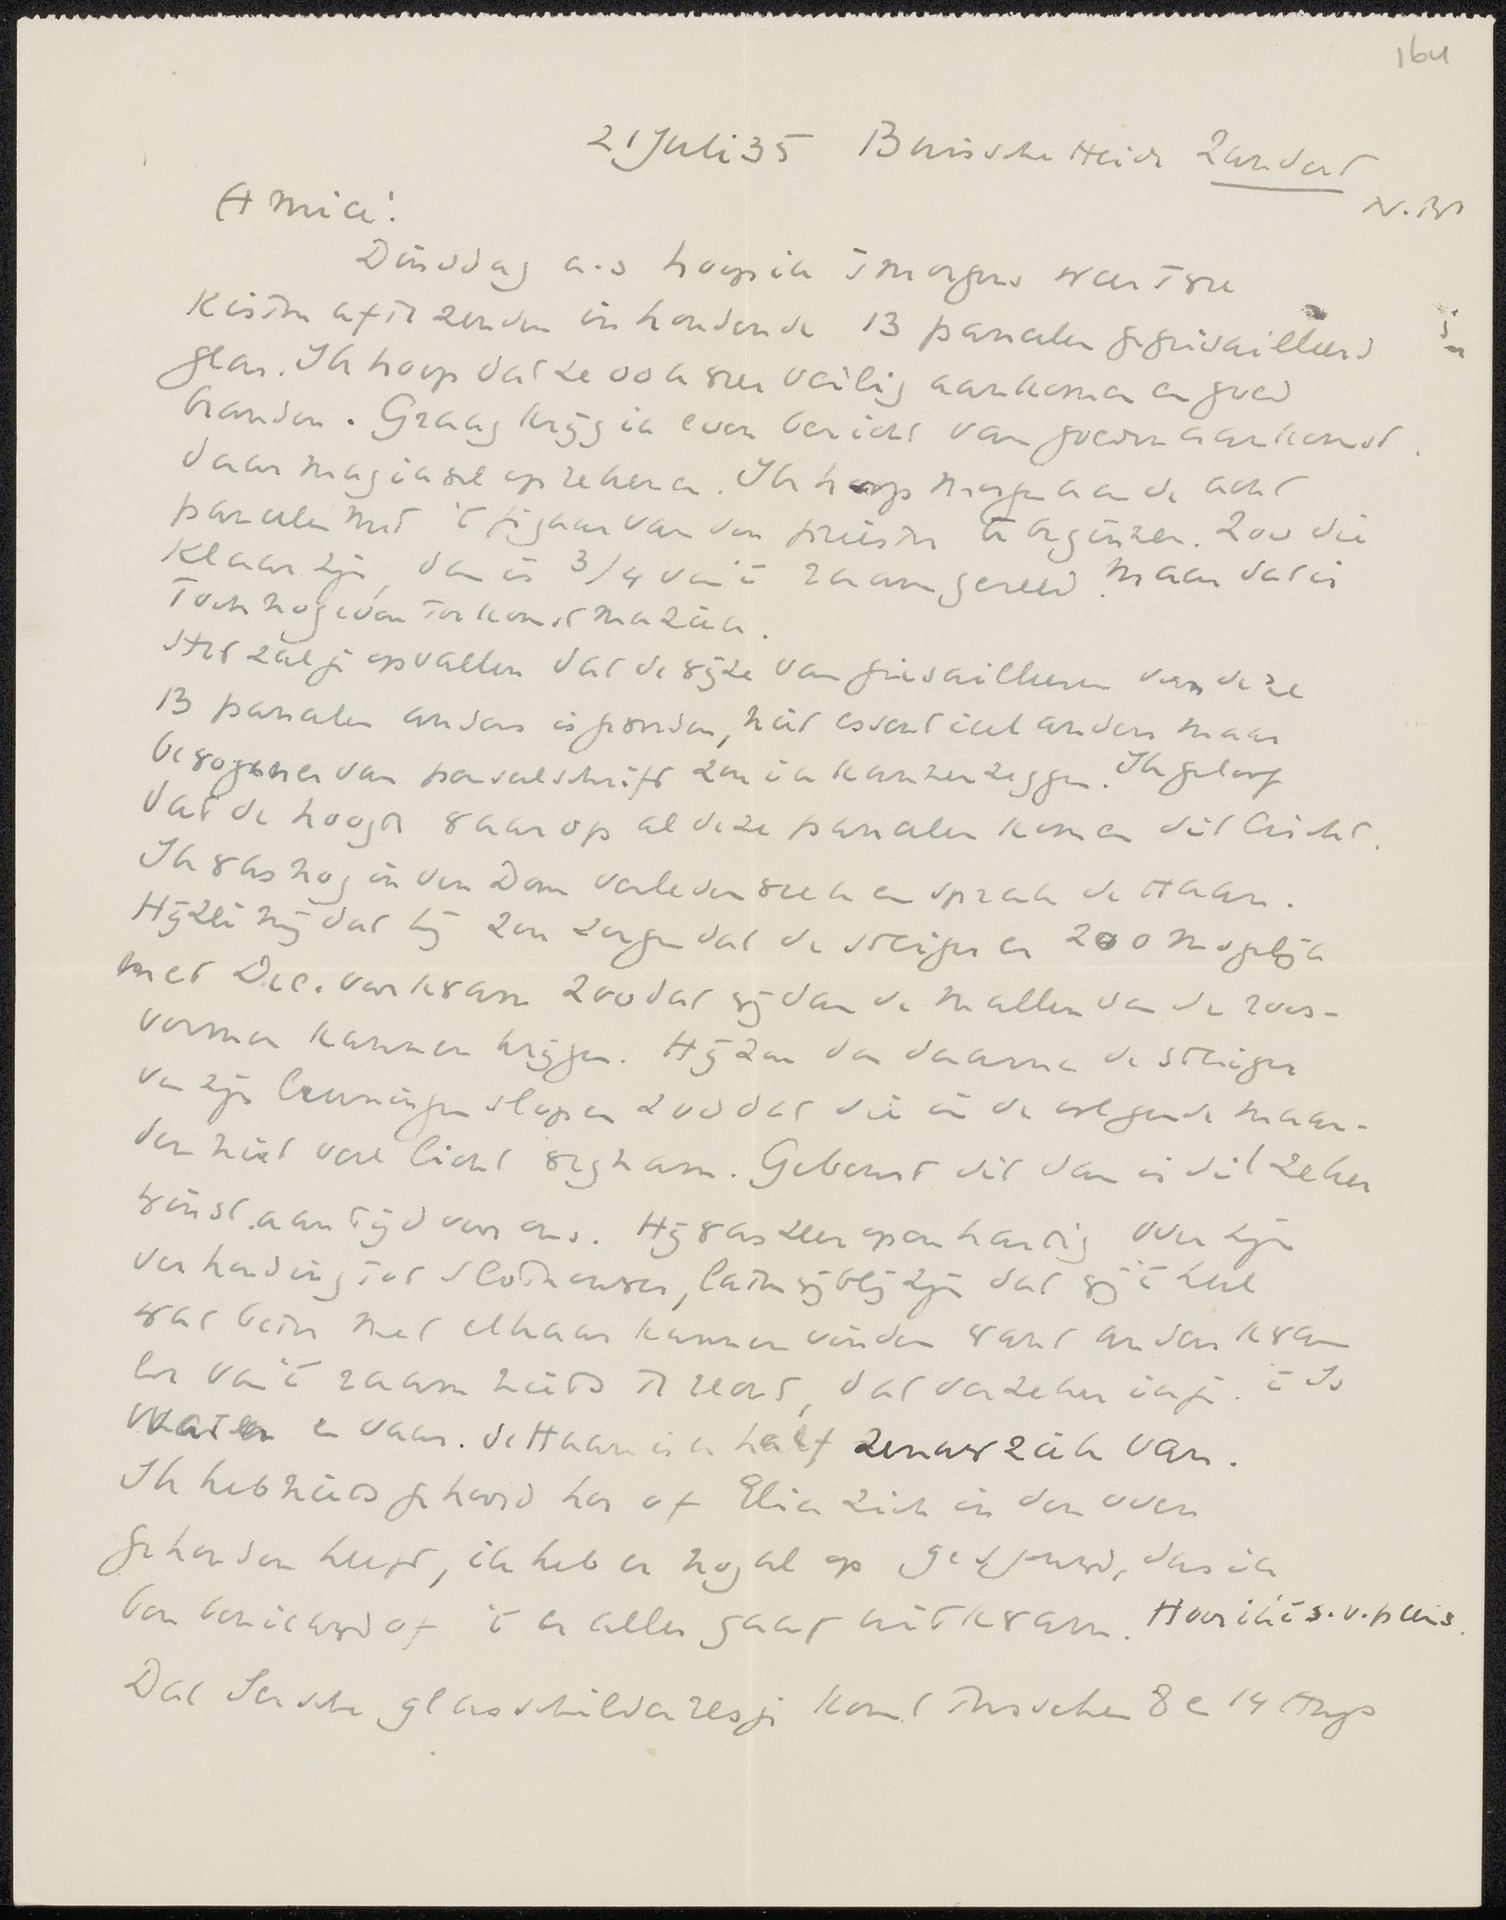 164
21 Juli 35 Buissche Heide Zundert
N.Br
Amici!
Dinsdag a.s hoop ik 'smorgens weer twee
kisten af te zenden inhoudende 13 panelen gegrisailleerd
glas. Ik hoop dat ze ook weer veilig aankomen en goed
branden. Graag krijg ik even bericht van goeden aankomst.
daar mag ik wel op rekenen. Ik hoop morgen aan de acht
panelen met 't figuur van den priester te beginnen. Zoo die
klaar zijn, dan is 3/4 van 't raam gereed. Maar dat is
toch nog even toekomstmuziek.
Het zal je opvallen dat de wijze van grisailleeren van deze
13 panelen anders is geworden, niet essentieel anders maar
bewogener van penseelschrift zou ik kunnen zeggen. Ik geloof
dat de hoogte waarop al deze panelen komen dit eischt.
Ik was nog in den Dom verleden week en sprak de Haan.
Hij zei mij dat hij zou zorgen dat de steiger er zoo mogelijk
met Dec. voor kwam zoodat wij dan de mallen van de roos-
vormen kunnen krijgen. Hij zou dan daarna de steiger
van zijn leuningen slopen zoodat die in de volgende maan-
den niet veel licht wegnam. Gebeurt dit dan is dit zeker
winst aan tijd voor ons. Hij was zeer openhartig over zijn
verhouding tot Slothouwer, laten wij blij zijn dat wij 't heel
wat beter met elkaar kunnen vinden want anders kwam
er van 't raam niets te recht, dat verzeker ik je. 't Is
water en vuur. de Haan is er half zenuwziek van.
Ik heb niets gehoord hoe of Elia zich in den oven
gehouden heeft, ik heb er nogal op gespeurd, dus ik
ben benieuwd of 't er alles gaaf uitkwam. Hoor ik 't s.v.p eens.
Dat Deensche glasschilderesje komt tusschen 8 en 14 Aug